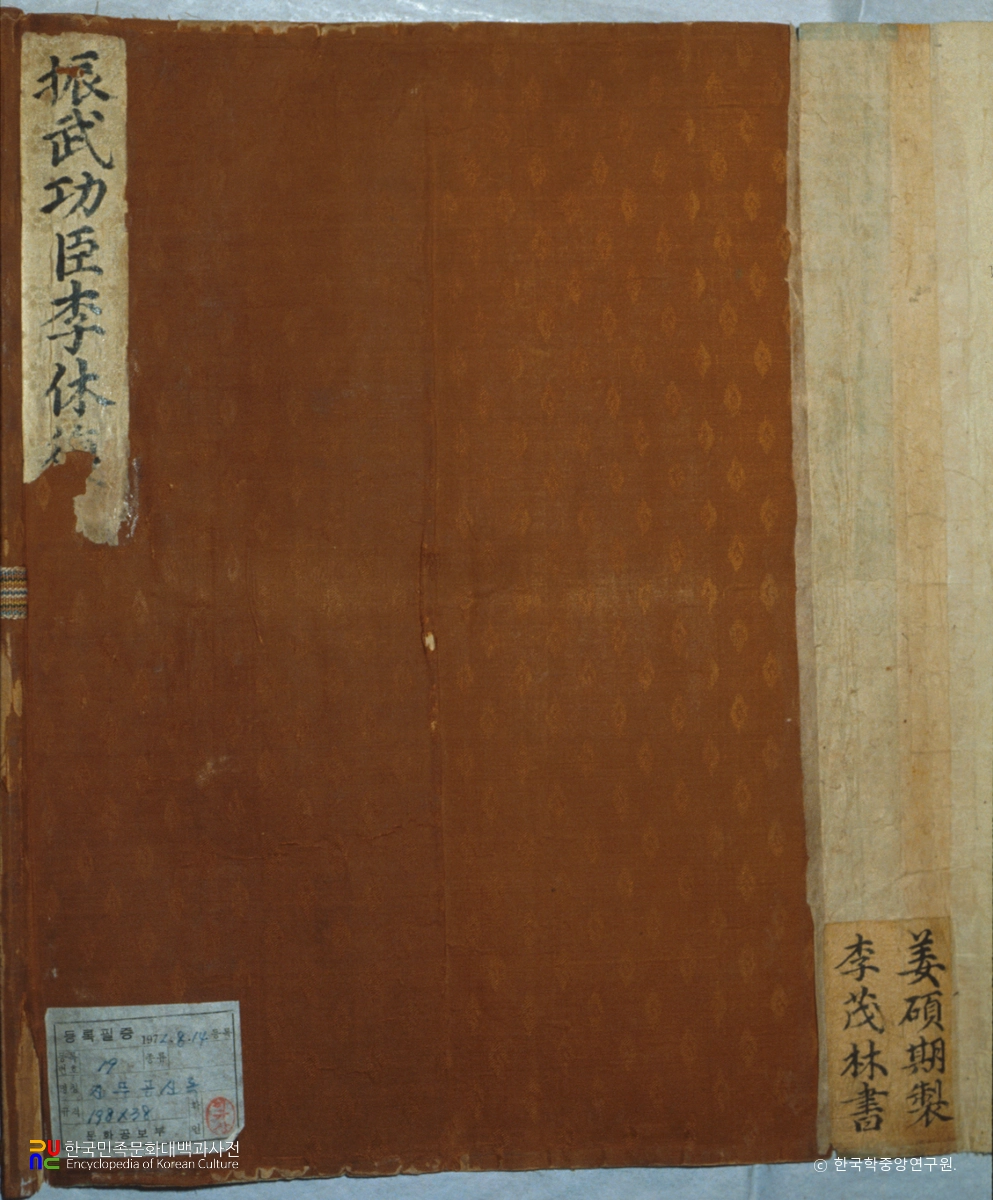 振武功臣李休
姜碩期製
李茂林書
등록필증 1972.8.14 등록
등록번호 19
명칭 진무공신록
규격 198X38
문화공보부
한국민족문화대백과사전
Encyclopedia of Korean Culture
© 한국학중앙연구원.